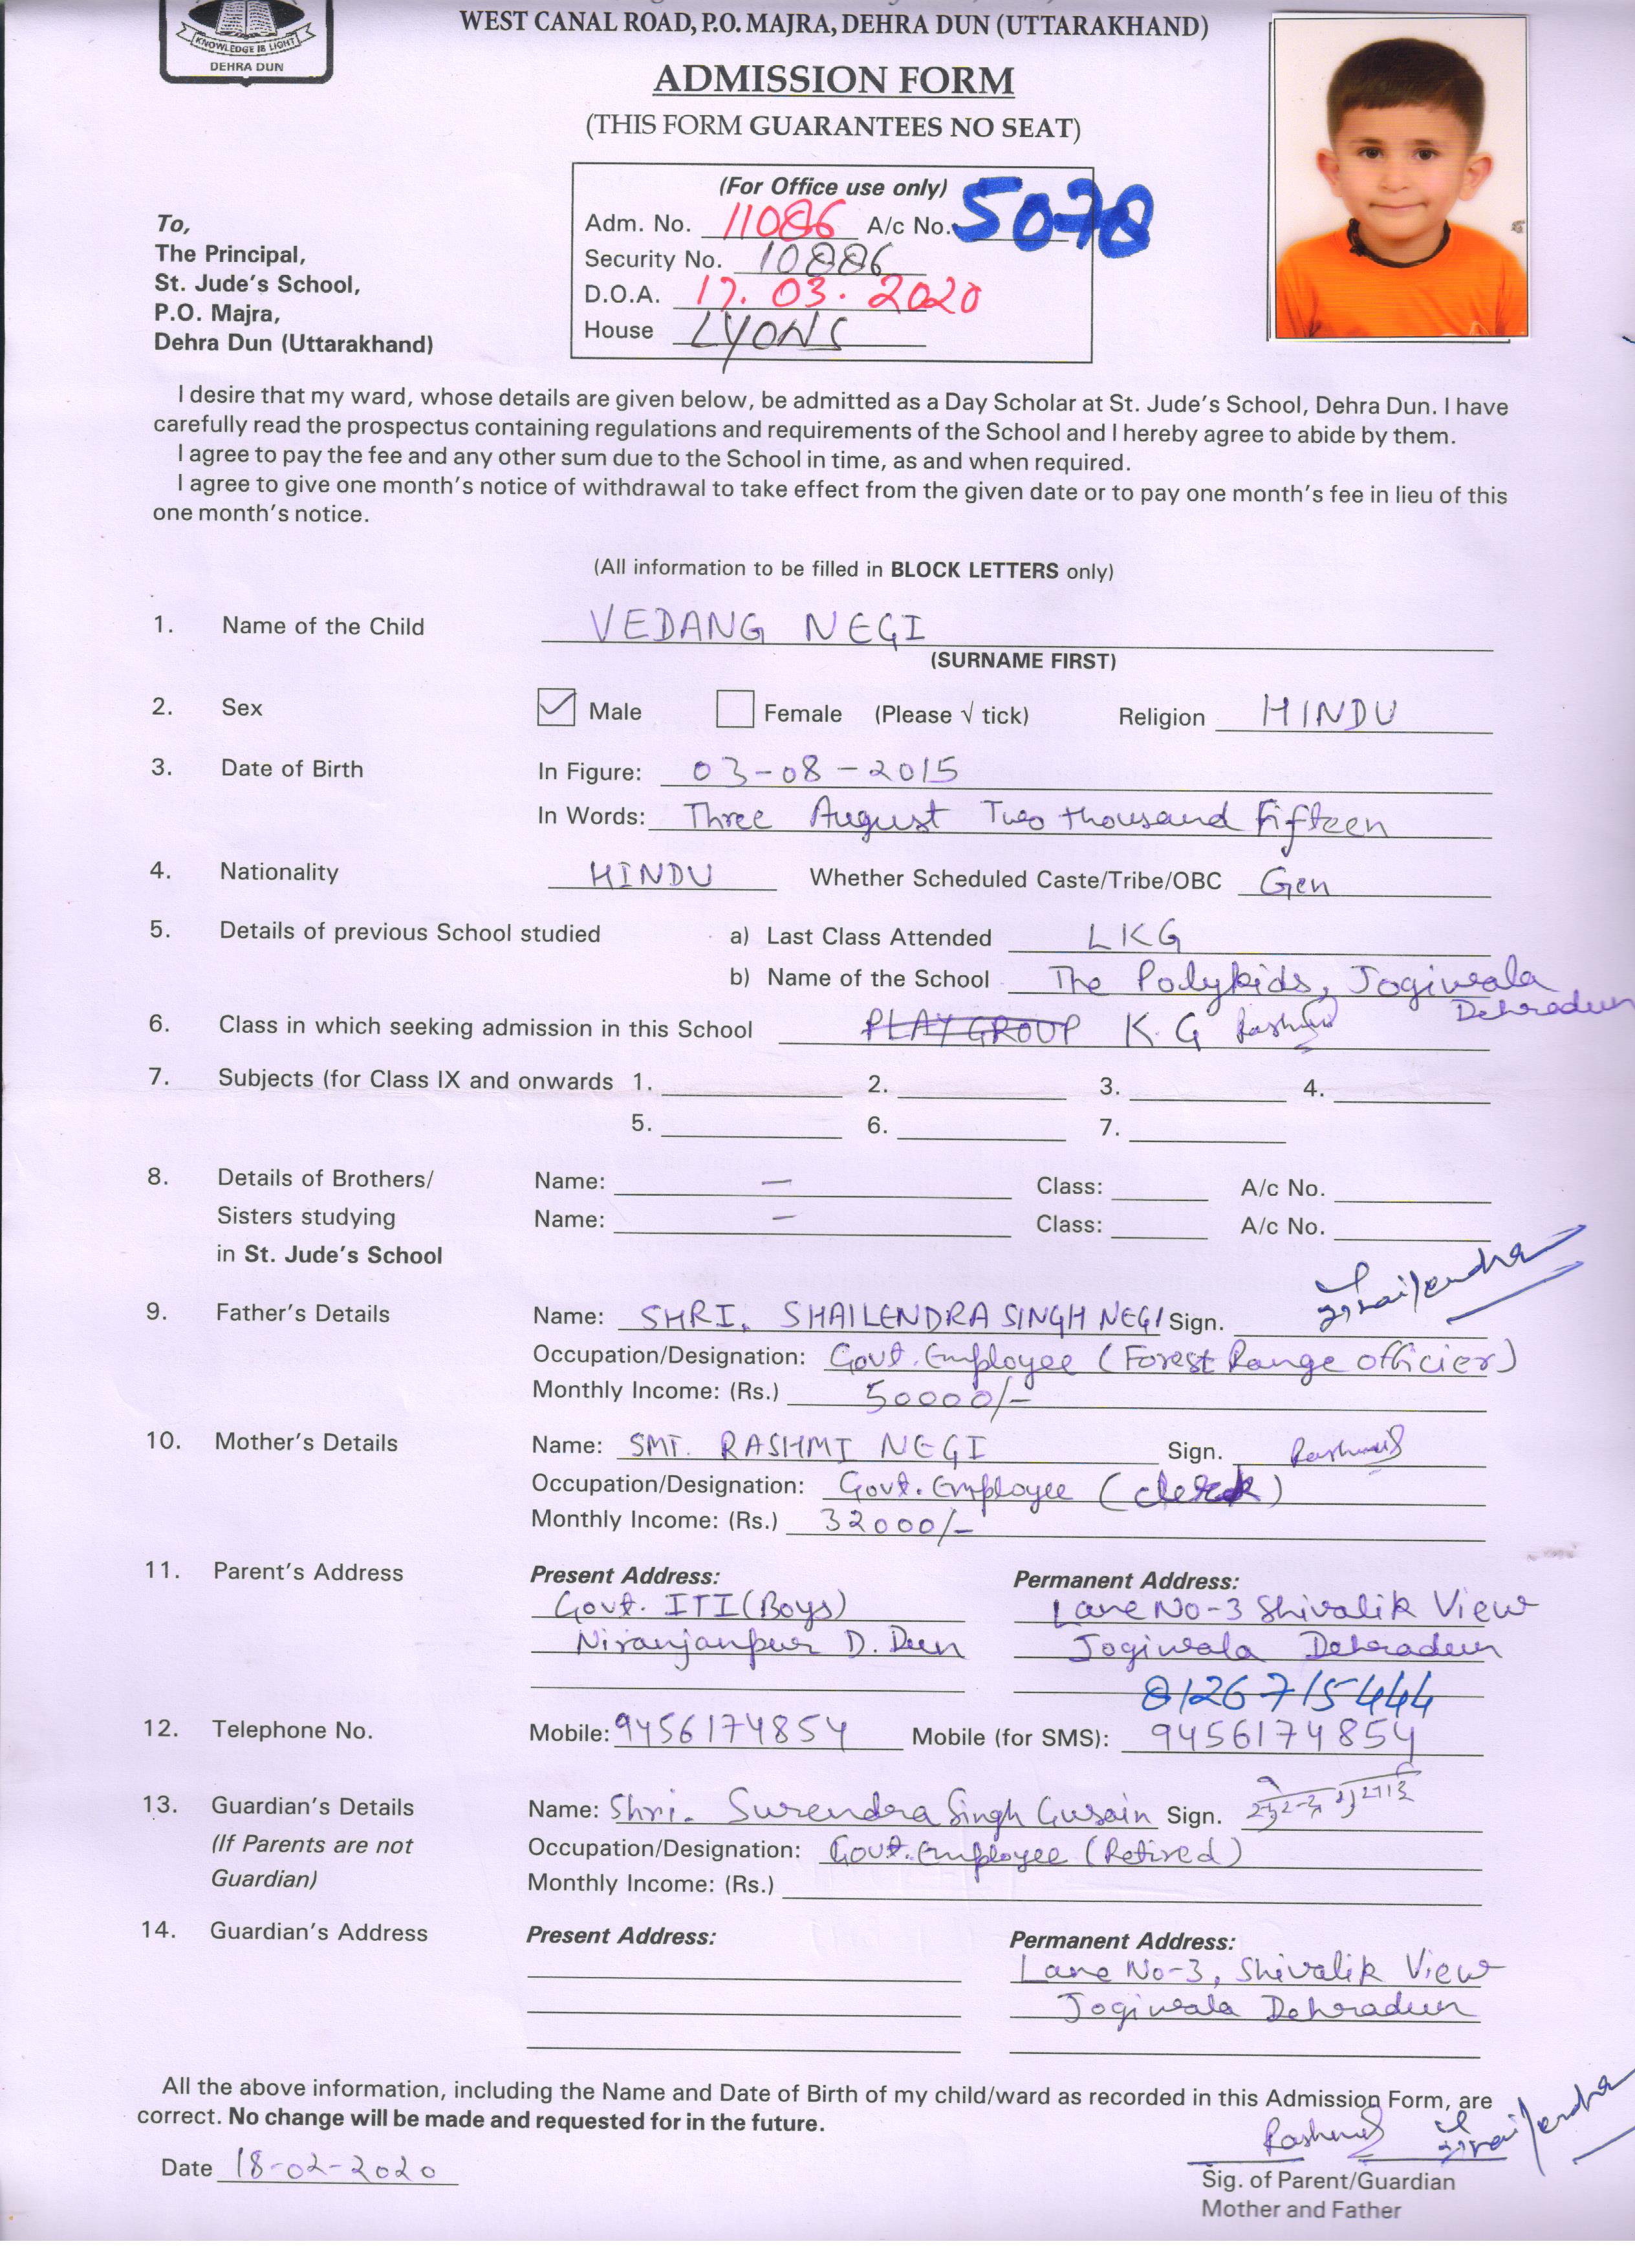 KNOWLEDGE IS LIGHT
DEHRA DUN
WEST CANAL ROAD, P.O. MAJRA, DEHRA DUN (UTTARAKHAND)
ADMISSION FORM
(THIS FORM GUARANTEES NO SEAT)
(For Office use only)
Adm. No. 11086 A/c No. 5078
Security No. 10886
D.O.A. 17.03.2020
House LYONS
To,
The Principal,
St. Jude's School,
P.O. Majra,
Dehra Dun (Uttarakhand)
I desire that my ward, whose details are given below, be admitted as a Day Scholar at St. Jude's School, Dehra Dun. I have
carefully read the prospectus containing regulations and requirements of the School and I hereby agree to abide by them.
I agree to pay the fee and any other sum due to the School in time, as and when required.
I agree to give one month's notice of withdrawal to take effect from the given date or to pay one month's fee in lieu of this
one month's notice.
(All information to be filled in BLOCK LETTERS only)
1. Name of the Child VEDANG NEGI
(SURNAME FIRST)
2. Sex Male Female (Please √ tick) Religion HINDU
3. Date of Birth In Figure: 03-08-2015
In Words: Three August Two thousand Fifteen
4. Nationality HINDU Whether Scheduled Caste/Tribe/OBC Gen
5. Details of previous School studied a) Last Class Attended LKG
b) Name of the School The Polykids, Jogiwala
Dehradun
6. Class in which seeking admission in this School PLAY GROUP K.G Rashmi
7. Subjects (for Class IX and onwards 1. 2. 3. 4.
5. 6. 7.
8. Details of Brothers/ Name: — Class: A/c No.
Sisters studying Name: — Class: A/c No.
in St. Jude's School
9. Father's Details Name: SHRI. SHAILENDRA SINGH NEGI Sign. Shailendra
Occupation/Designation: Govt. Employee (Forest Range officier)
Monthly Income: (Rs.) 50000/-
10. Mother's Details Name: SMT. RASHMI NEGI Sign. Rashmi
Occupation/Designation: Govt. Employee (clerk)
Monthly Income: (Rs.) 32000/-
11. Parent's Address Present Address: Permanent Address:
Govt. ITI (Boys) Lane No-3 Shivalik View
Niranjanpur D. Dun Jogiwala Dehradun
8126715444
12. Telephone No. Mobile: 9456174854 Mobile (for SMS): 9456174854
13. Guardian's Details Name: Shri. Surendra Singh Gusain Sign.
(If Parents are not Occupation/Designation: Govt. Employee (Retired)
Guardian) Monthly Income: (Rs.)
14. Guardian's Address Present Address: Permanent Address:
Lane No-3, Shivalik View
Jogiwala Dehradun
All the above information, including the Name and Date of Birth of my child/ward as recorded in this Admission Form, are
correct. No change will be made and requested for in the future.
Rashmi Shailendra
Date 18-02-2020
Sig. of Parent/Guardian
Mother and Father